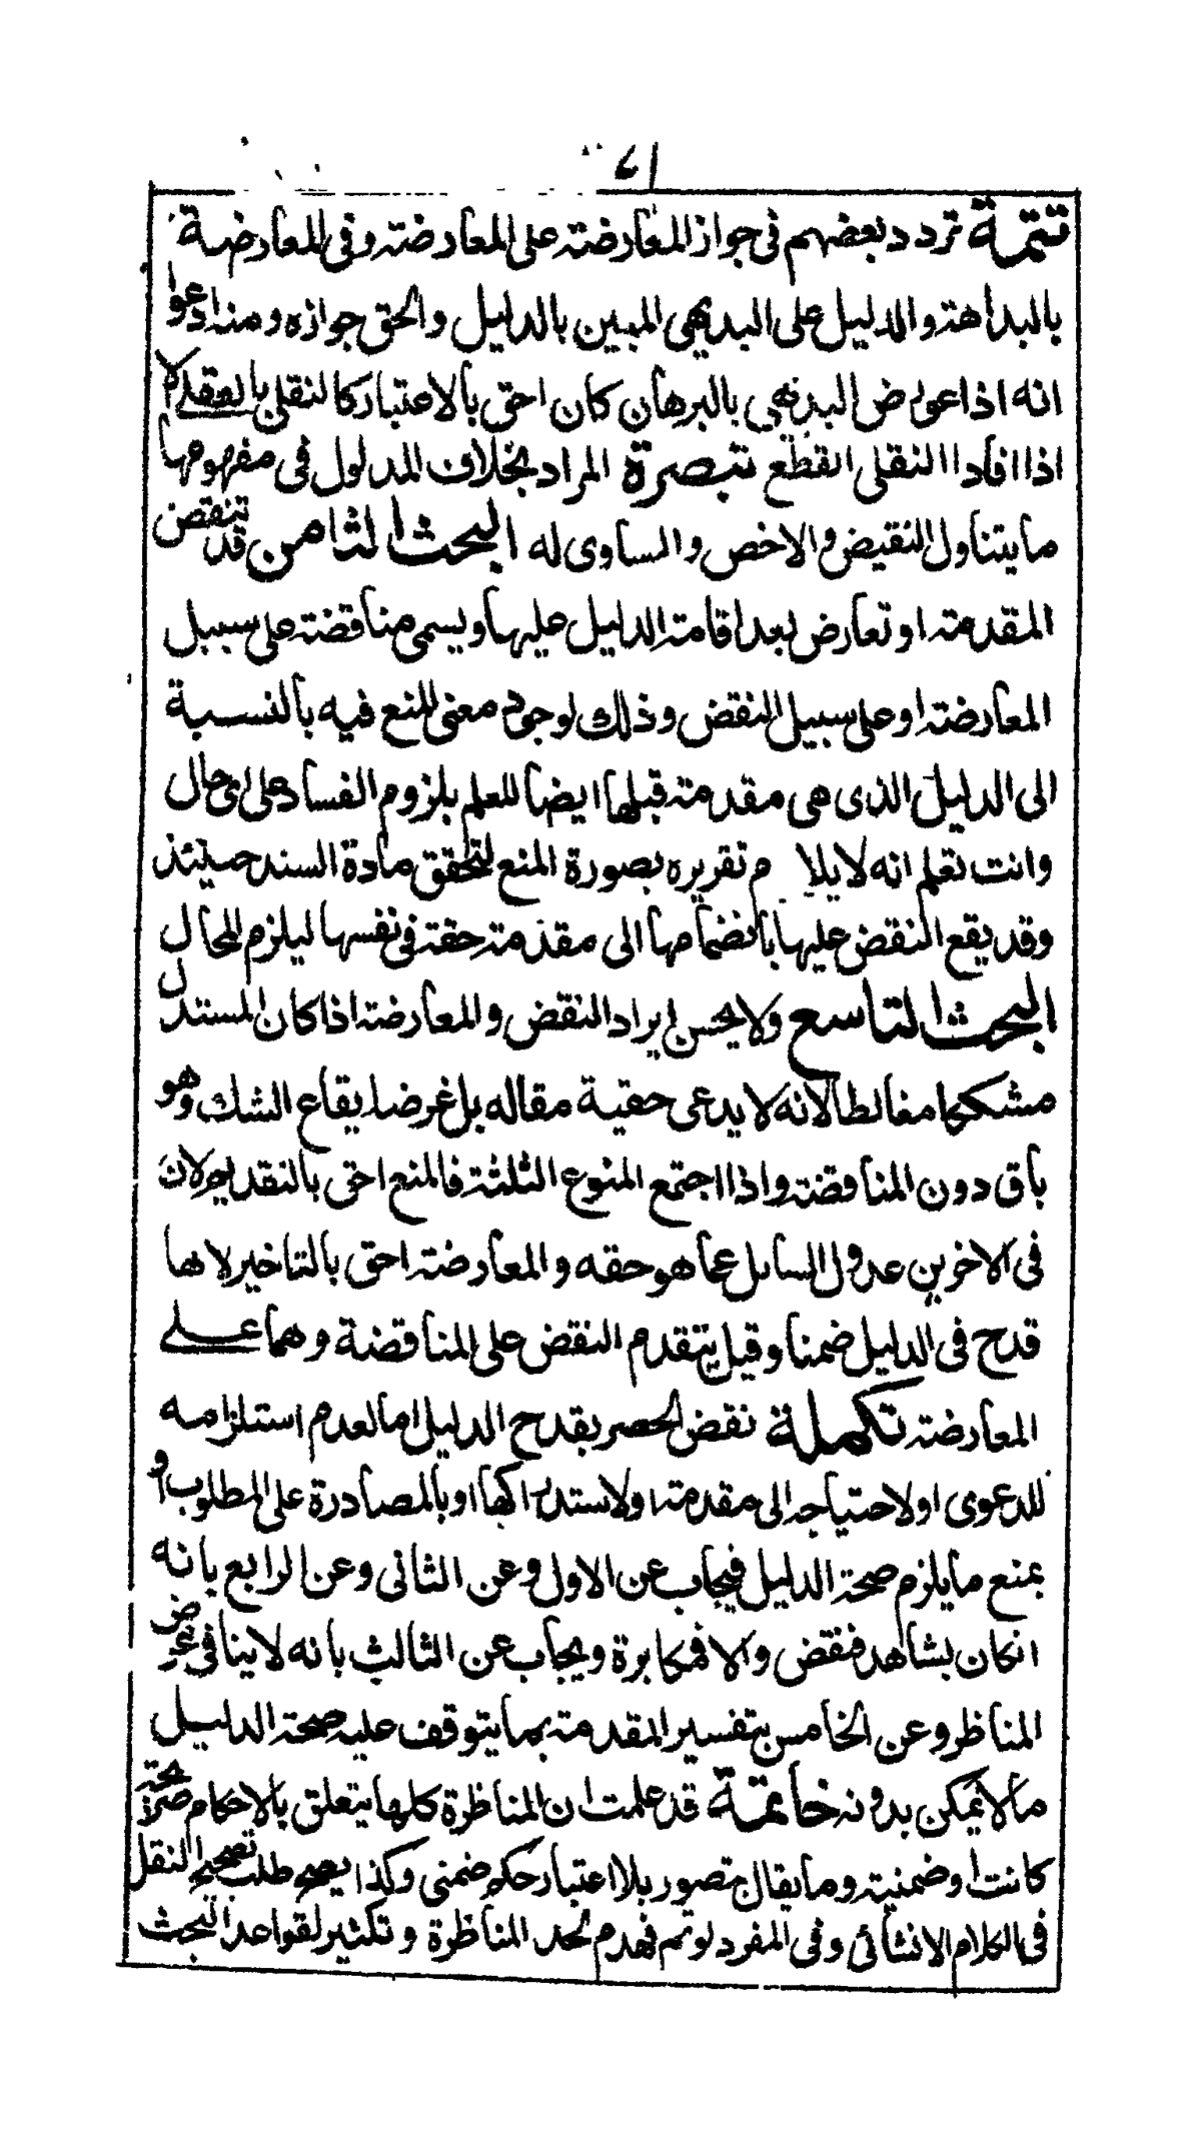 تتمة تردد بعضهم فى جواز المعارضة على المعارضة وفى المعارضة
بالبداهة والدليل على البديهى المبين بالدليل والحق جوازه ومنه ادعوا
انه اذا عورض البديهى بالبرهان كان احق بالاعتبار كالنقلى بالعقلى لا
اذا افاد النقلى القطع تبصرة المراد بخلاف المدلول فى مفهومها
ما يتناول النقيض والاخص والمساوى له البحث الثامن قد تنقض
المقدمة او تعارض بعد اقامة الدليل عليها ويسمى مناقضة على سبيل
المعارضة او على سبيل النقض وذلك لوجود معنى المنع فيه بالنسبة
الى الدليل الذى هى مقدمة قبلها ايضا للعلم بلزوم الفساد على اى حال
وانت تعلم انه لا يلا م تقريره بصورة المنع لتحقق مادة السند حينئذ
وقد يقع النقض عليها بانضمامها الى مقدمة حقة فى نفسها ليلزم المحال
البحث التاسع ولا يحسن ايراد النقض والمعارضة اذا كان المستدل
مشككا مغالطا لانه لا يدعى حقية مقاله بل غرضه ايقاع الشك وهو
باق دون المناقضة واذا اجتمع المنوع الثلثة فالمنع احق بالتقديم لان
فى الاخرين عدول السائل عما هو حقه والمعارضة احق بالتاخير لانها
قدح فى الدليل ضمنا وقيل يتقدم النقض على المناقضة وهما على
المعارضة تكملة نقض الحصر بقدح الدليل اما لعدم استلزامه
للدعوى او لاحتياجه الى مقدمة او لاستدراكها او بالمصادرة على المطلوب او
بمنع ما يلزم صحة الدليل فيجاب عن الاول وعن الثانى وعن الرابع بانه
انكان بشاهد فنقض والا فمكابرة ويجاب عن الثالث بانه لا ينافى غرض
المناظر وعن الخامس بتفسير المقدمة بما يتوقف عليه صحة الدليل
مالا يمكن بدونه خاتمة قد علمت ان المناظرة كلها يتعلق بالاحكام صريحة
كانت او ضمنية وما يقال متصور بلا اعتبار حكم ضمنى وكذا يصح طلب تصحيح النقل
فى الكلام الانشائى وفى المفرد لو تم فهدم لحد المناظرة وتكثير لقواعد البحث